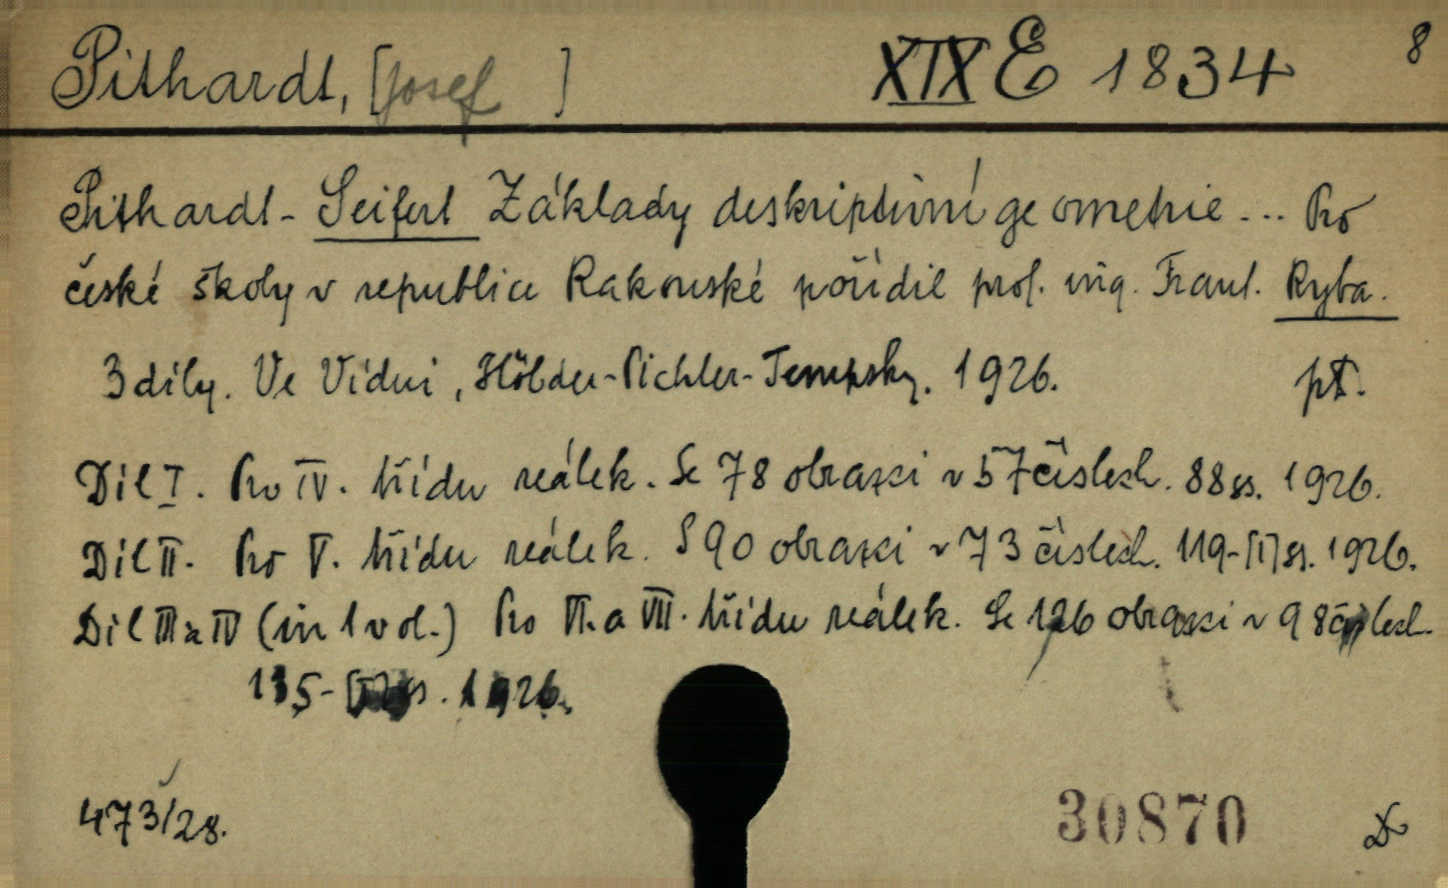 Pithardt, [Josef ] XIX E 1834 8
Pithardt - Seifert Základy deskriptivní geometrie ... Pro
české školy v republice Rakouské pořídil prof. ing. Frant. Ryba.
3 díly. Ve Vídni, Hölder-Pichler-Tempsky. 1926. pt.
Díl I. Pro IV. třídu reálek. Se 78 obrazci v 57 číslech. 88 ss. 1926.
Díl II. Pro V. třídu reálek. S 90 obrazci v 73 číslech. 119-[1] ss. 1926.
Díl III a IV (in 1 vol.) Pro VI. a VII. třídu reálek. Se 126 obrazci v 98 číslech.
115- ss. 1926.
473/28.
30870